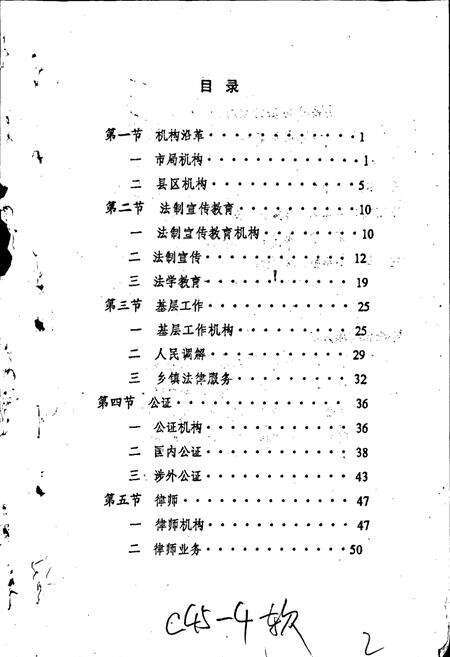 目 录
第一节 机构沿革············1
一 市局机构·············1
二 县区机构············5
第二节 法制宣传教育··········10
一 法制宣传教育机构········10
二 法制宣传············12
三 法学教育············19
第三节 基层工作············25
一 基层工作机构··········25
二 人民调解···········29
三 乡镇法律服务·········32
第四节 公证··············36
一 公证机构············36
二 国内公证············38
三 涉外公证············43
第五节 律师·············47
一 律师机构············47
二 律师业务············50
C45-4软
2